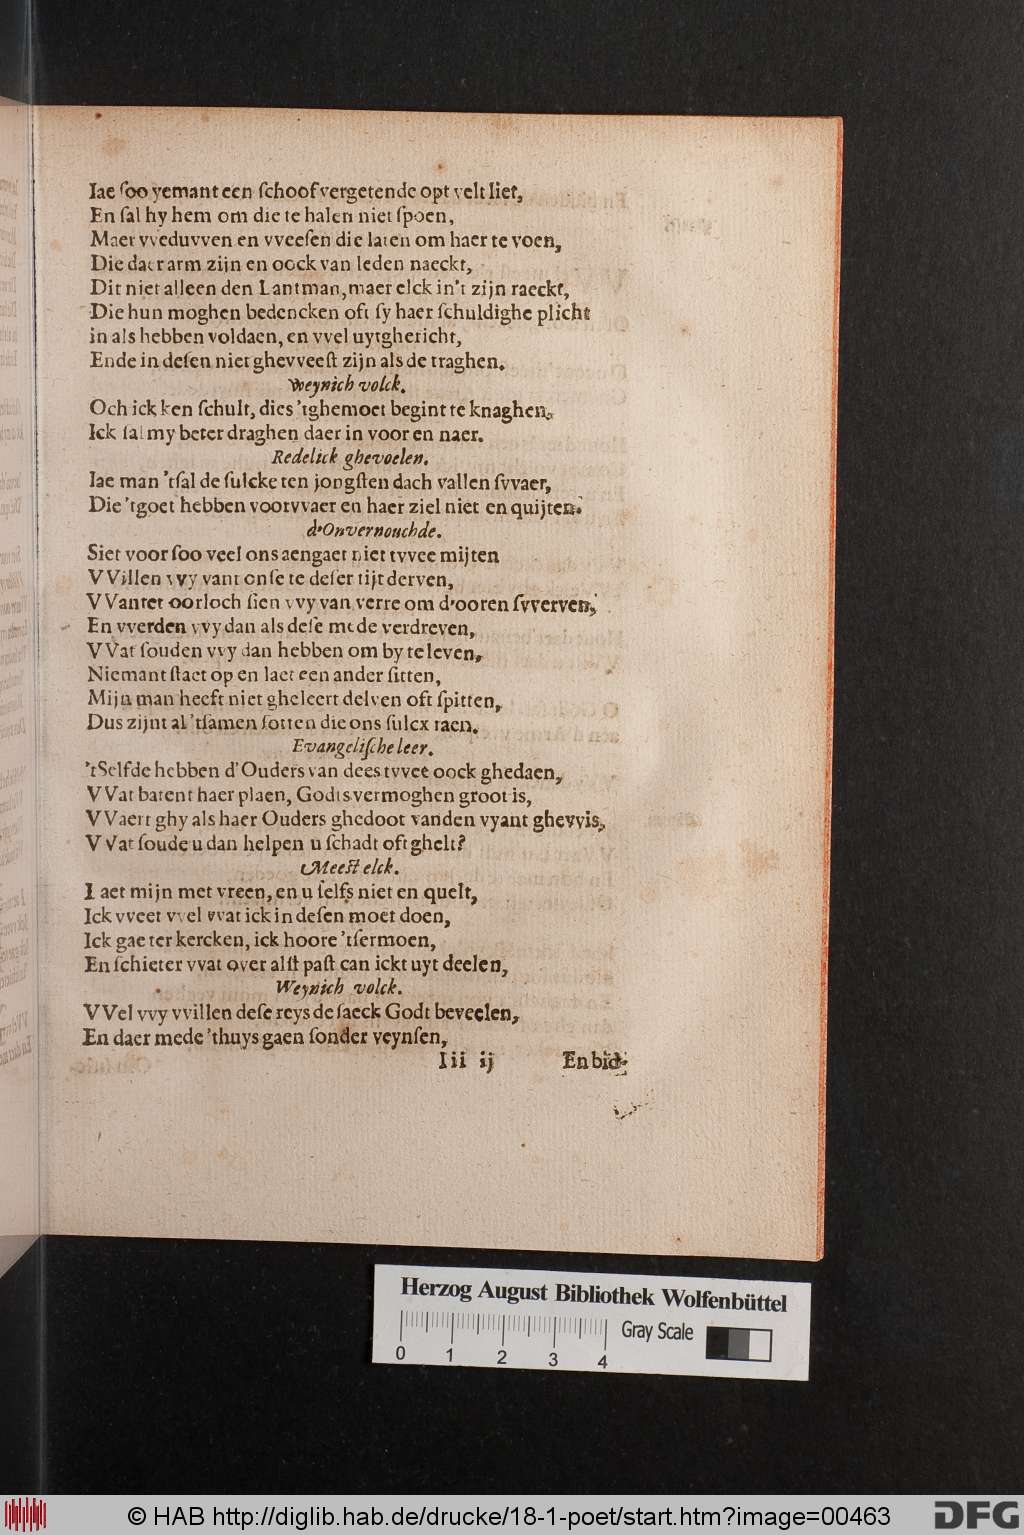 Iae ſoo yemant een ſchoof vergetende opt velt liet,
En ſal hy hem om die te halen niet ſpoen,
Maer vveduvven en vveeſen die laten om haer te voen,
Die daer arm zijn en oock van leden naeckt,
Dit niet alleen den Lantman, maer elck in't zijn raeckt,
Die hun moghen bedencken oft ſy haer ſchuldighe plicht
in als hebben voldaen, en vvel uytghericht,
Ende in deſen niet ghevveeſt zijn als de traghen.
Weynich volck.
Och ick ken ſchult, dies 'tghemoet begint te knaghen,
Ick ſal my beter draghen daer in voor en naer.
Redelick ghevoelen.
Iae man 'tſal de ſulcke ten jongſten dach vallen ſvvaer,
Die 'tgoet hebben voorvvaer en haer ziel niet en quijten.
d'Onvernouchde.
Siet voor ſoo veel ons aengaet niet tvvee mijten
VVillen vvy vant onſe te deſer tijt derven,
VVantet oorloch ſien vvy van verre om d'ooren ſvverven,
En vverden vvy dan als deſe mede verdreven,
VVat ſouden vvy dan hebben om by te leven,
Niemant ſtaet op en laet een ander ſitten,
Mijn man heeft niet gheleert delven oft ſpitten,
Dus zijnt al 'tſamen ſotten die ons ſulcx raen.
Evangeliſche leer.
'tSelfde hebben d'Ouders van dees tvvee oock ghedaen,
VVat batent haer plaen, Godts vermoghen groot is,
VVaert ghy als haer Ouders ghedoot vanden vyant ghevvis,
VVat ſoude u dan helpen u ſchadt oft ghelt?
Meeſt elck.
Laet mijn met vreen, en u ſelfs niet en quelt,
Ick vveet vvel vvat ick in deſen moet doen,
Ick gae ter kercken, ick hoore 'tſermoen,
En ſchieter vvat over alſt paſt can ickt uyt deelen,
Weynich volck.
VVel vvy vvillen deſe reys de ſaeck Godt beveelen,
En daer mede 'thuys gaen ſonder veynſen,
Iii ij En bid-
Herzog August Bibliothek Wolfenbüttel
Gray Scale
0 1 2 3 4
© HAB http://diglib.hab.de/drucke/18-1-poet/start.htm?image=00463
DFG